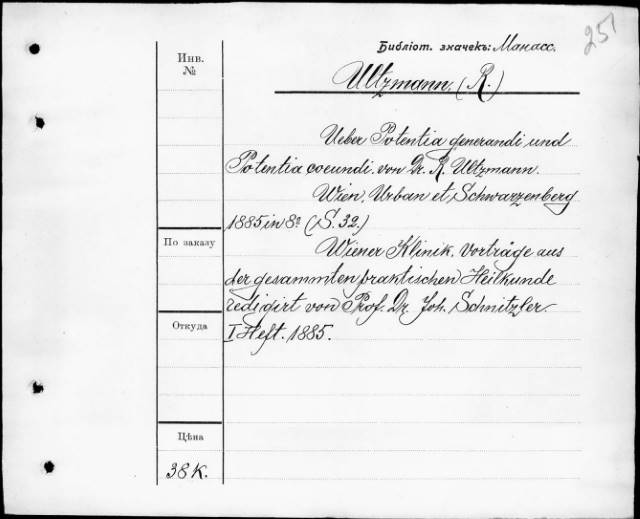 251
Библіот. значекъ: Манасс.
Инв.
№
Ultzmann. (R.)
Ueber Potentia generandi und
Potentia coeundi. von Dr. R. Ultzmann.
Wien. Urban et Schwarzenberg
1885 in 8º (S. 32.)
По заказу
Wiener Klinik. Vorträge aus
der gesammten praktischen Heilkunde
redigirt von Prof. Dr. Joh. Schnitzler.
Откуда
I Heft. 1885.
Цѣна
38 К.